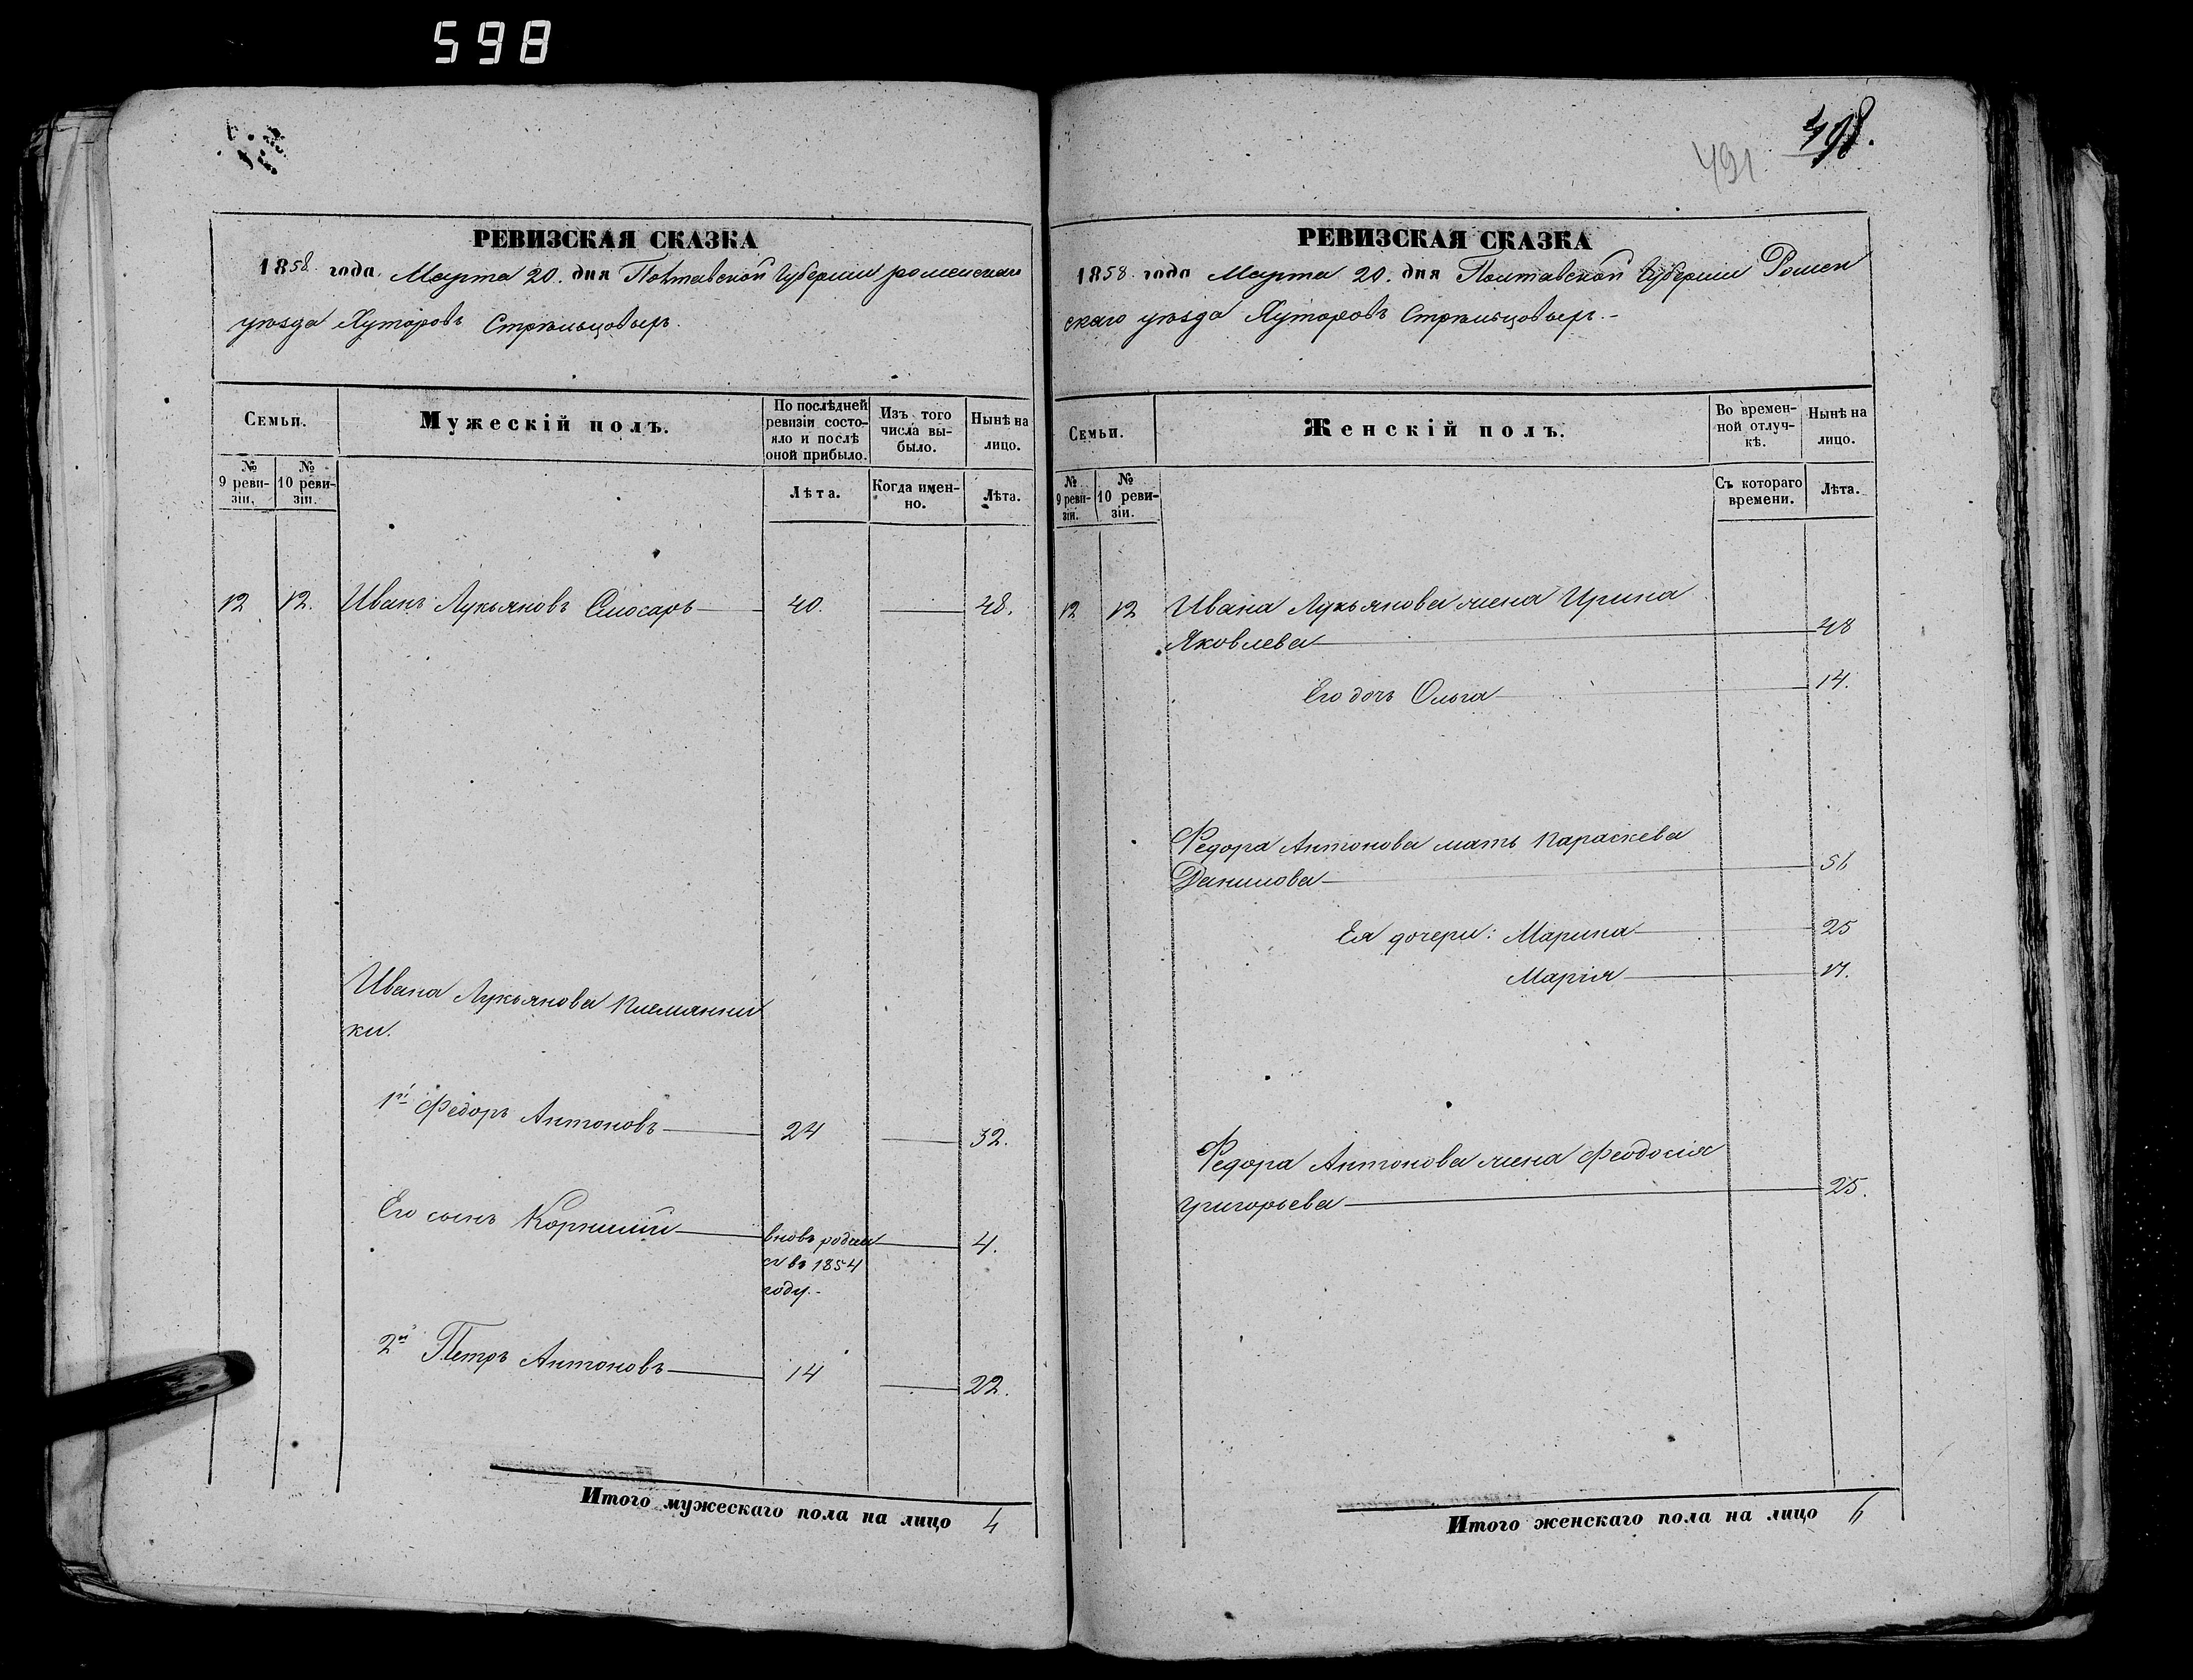 598
РЕВИЗСКАЯ СКАЗКА
1858 года Марта 20. дня Полтавской Губернии роменскаго
уѣзда Хуторовъ Стрѣльцовыхъ.
Семьи.
Мужескій полъ.
По послѣдней ревизіи состояло и послѣ оной прибыло.
Изъ того числа выбыло.
Нынѣ на лицо.
№ 9 ревизіи.
№ 10 ревизіи.
Лѣта.
Когда именно.
Лѣта.
12 12. Иванъ Лукьяновъ Слюсарь 40. 48.
Ивана Лукьянова племянни
ки.
1й Федоръ Антоновъ 24 32.
Его сынъ Корнилий вновь родил 4.
ся въ 1854
году.
2й Петръ Антоновъ 14 22.
Итого мужескаго пола на лицо 4
491
498.
РЕВИЗСКАЯ СКАЗКА
1858 года Марта 20. дня Полтавской Губернии Ромен
скаго уѣзда Хуторовъ Стрѣльцовыхъ.
Семьи.
Женскій полъ.
Во временной отлучкѣ.
Нынѣ на лицо.
№ 9 ревизіи.
№ 10 ревизіи.
Съ котораго времени.
Лѣта.
12 12 Ивана Лукьянова жена Ирина
Яковлева 48
Его дочь Ольга 14.
Федора Антонова мать Параскева
Данилова 56
Ея дочери: Марина 25
Марія 17.
Федора Антонова жена Феодосія
Григорьева 25.
Итого женскаго пола на лицо 6